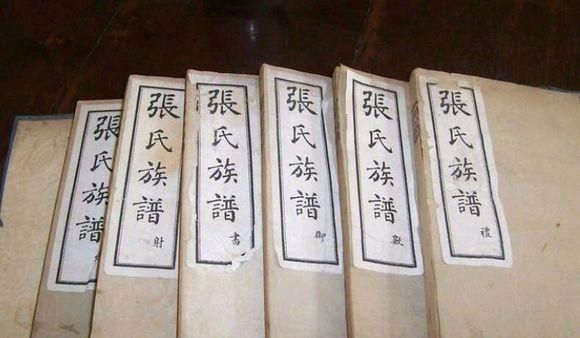 張氏族譜
張氏族譜
射
張氏族譜
書
張氏族譜
御
張氏族譜
數
張氏族譜
禮